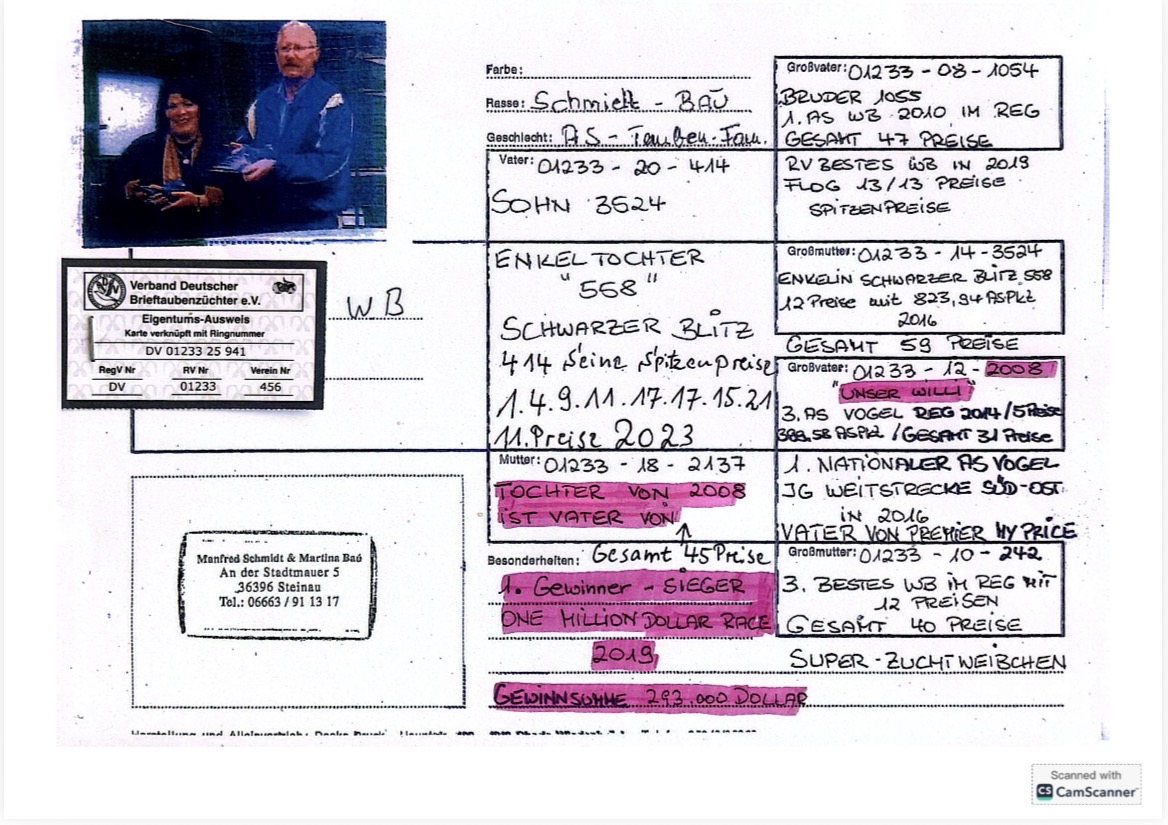 Farbe:
Rasse: Schmidt - BAÚ
Geschlecht: AS - Tauben-Fam.
Vater: 01233 - 20 - 414
SOHN 3524
ENKELTOCHTER
"568"
SCHWARZER BLITZ
414 Seine Spitzenpreise
1.4.9.11.17.17.15.21
11.Preise 2023
Mutter: 01233 - 18 - 2137
TOCHTER VON 2008
IST VATER VON
Gesamt 45 Preise
Besonderheiten:
1. Gewinner - SIEGER
ONE MILLION DOLLAR RACE
2019
GEWINNSUMME 293.000 DOLLAR
Großvater: 01233 - 08 - 1054
BRUDER 1055
1. AS WB 2010 IM REG
GESAMT 47 PREISE
RV BESTES WB IN 2019
FLOG 13/13 PREISE
SPITZENPREISE
Großmutter: 01233 - 14 - 3524
ENKELIN SCHWARZER BLITZ 568
12 Preise mit 823,94 ASPkt
2016
GESAMT 59 PREISE
Großvater: 01233 - 12 - 2008
"UNSER WILLI"
3. AS VOGEL REG 2014/5 Preise
ASPkt /GESAMT 31 Preise
1. NATIONALER AS VOGEL
JG WEITSTRECKE SÜD-OST
IN 2016
VATER VON PREMIER MY PRICE
Großmutter: 01233 - 10 - 242
3. BESTES WB IM REG MIT
12 PREISEN
GESAMT 40 PREISE
SUPER-ZUCHTWEIBCHEN
Verband Deutscher
Brieftaubenzüchter e.V.
Eigentums-Ausweis
Karte verknüpft mit Ringnummer
DV 01233 25 941
RegV Nr RV Nr Verein Nr
DV 01233 456
WB
Manfred Schmidt & Martina Baú
An der Stadtmauer 5
36396 Steinau
Tel.: 06663 / 91 13 17
Scanned with
CS CamScanner